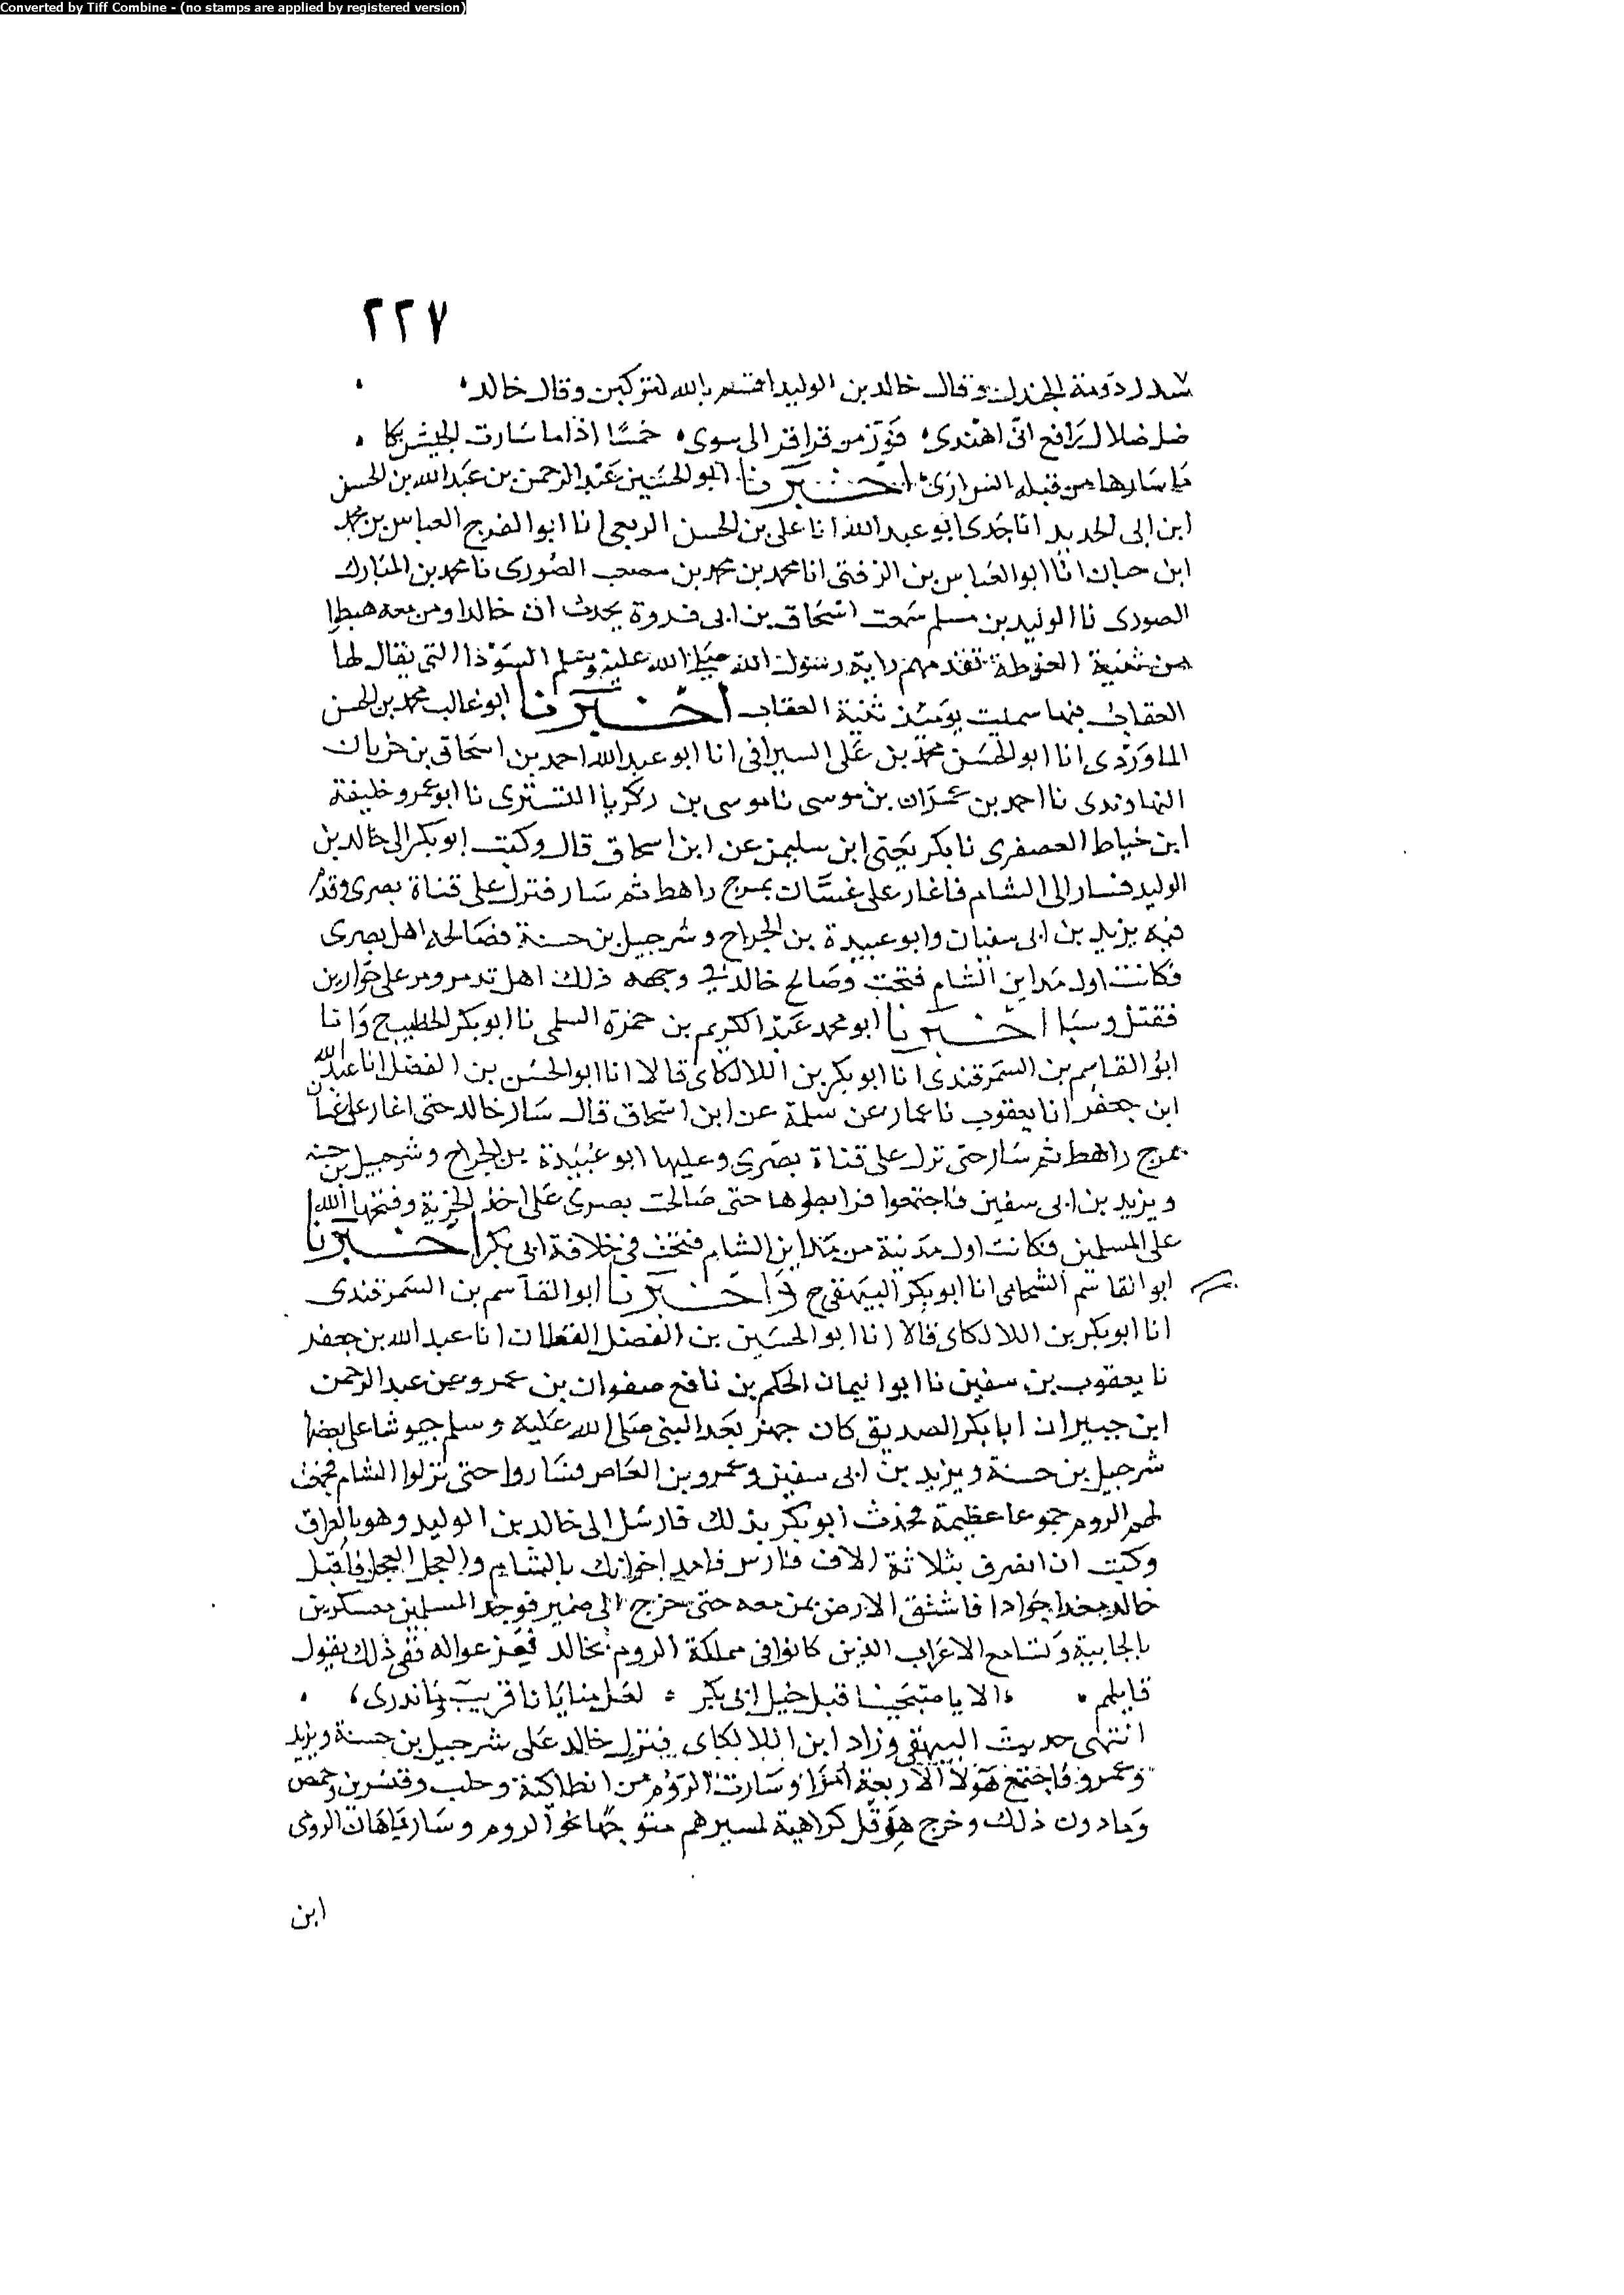 Converted by Tiff Combine - (no stamps are applied by registered version)
٢٢٧
دومة الجندل وقال خالد بن الوليد اقسم بالله لتوكبن وقال خالد
ضل ضلال رافع انى اهتدى فوز من قراقر الى سوى خمسا اذا ما سارت الجيش بكا
ما سارها من قبله اخبرنا ابو الحسين عبد الرحمن بن عبد الله بن الحسن
ابن ابى الحديد انا جدى ابو عبد الله انا على بن الحسن الربعى انا ابو الفرج العباس بن محمد
ابن حبان انا ابو العباس بن الزفتى انا محمد بن محمد بن مصعب الصورى نا محمد بن المبارك
الصورى نا الوليد بن مسلم سمعت اسحاق بن ابى فروة يحدث ان خالدا ومن معه هبطوا
من ثنية الغوطة تقدمهم راية رسول الله صلى الله عليه وسلم السوداء التى يقال لها
العقاب فبها سميت يومئذ ثنية العقاب اخبرنا ابو غالب محمد بن الحسن
الماوردى انا ابو الحسن محمد بن على السيرافى انا ابو عبد الله احمد بن اسحاق بن خربان
النهاوندى نا احمد بن عمران بن موسى نا موسى بن زكريا التسترى نا ابو عمرو خليفة
ابن خياط العصفرى نا بكر يعنى ابن سليمن عن ابن اسحاق قال وكتب ابو بكر الى خالد بن
الوليد فسار الى الشام فاغار على غسان بمرج راهط ثم سار فنزل على قناة بصرى وقدم
فيه يزيد بن ابى سفيان وابو عبيدة بن الجراح وشرحبيل بن حسنة فصالحه اهل بصرى
فكانت اول مداين الشام فتحت وصالح خالد فى وجهه ذلك اهل تدمر ومر على حوارين
فقتل وسبا اخبرنا ابو محمد عبد الكريم بن حمزة السلمى نا ابو بكر الخطيب ح وانا
ابو القاسم بن السمرقندى انا ابو بكر بن اللالكاى قالا انا ابو الحسين بن الفضل انا عبد الله
ابن جعفر انا يعقوب نا عمار عن سلمة عن ابن اسحاق قال سار خالد حتى اغار على غسان
بمرج راهط ثم سار حتى نزل على قناة بصرى وعليها ابو عبيدة بن الجراح وشرحبيل بن حسنه
ويزيد بن ابى سفين فاجتمعوا فرابطوها حتى صالحت بصرى على اخذ الجزية وفتحها الله
على المسلمين فكانت اول مدينة من مداين الشام فتحت فى خلافة ابى بكر اخبرنا
ابو القاسم الشحامى انا ابو بكر البيهقى ح واخبرنا ابو القاسم بن السمرقندى
انا ابو بكر بن اللالكاى قالا انا ابو الحسين بن الفضل القطان انا عبد الله بن جعفر
نا يعقوب بن سفين نا ابو اليمان الحكم بن نافع صفوان بن عمرو عن عبد الرحمن
ابن جبير ان ابا بكر الصديق كان جهز بعد النبى صلى الله عليه وسلم جيوشا على بعضها
شرحبيل بن حسنة ويزيد بن ابى سفين وعمرو بن العاص فساروا حتى نزلوا الشام فجمعت
لهم الروم جموعا عظيمة فحدث ابو بكر بذلك فارسل الى خالد بن الوليد وهو بالعراق
وكتب ان انصرف بثلاثة الاف فارس فامد اخوانك بالشام والعجل العجل فاقبل
خالد مغذا جوادا فاشتق الارض بمن معه حتى خرج الى ضمير فوجد المسلمين معسكرين
بالجابية وتسامع الاعراب الذين كانوا فى مملكة الروم بخالد ففزعوا له ففى ذلك يقول
قايلهم الا يا صبحينا قبل خيل ابى بكر لعل منايانا قريب وما ندرى
انتهى حديث البيهقى وزاد ابن اللالكاى فنزل خالد على شرحبيل بن حسنة ويزيد
وعمرو فاجتمع هولا الاربعة امرا وسارت الروم من انطاكية وحلب وقنسرين وحمص
وما دون ذلك وخرج هرقل كراهية لمسيرهم متوجها نحو الروم وسار باهان الرومى
ابن